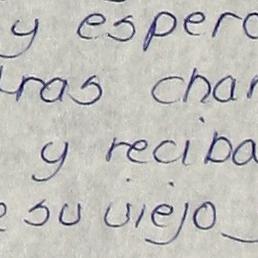 y espero
tras char
y reciba
e su viejo